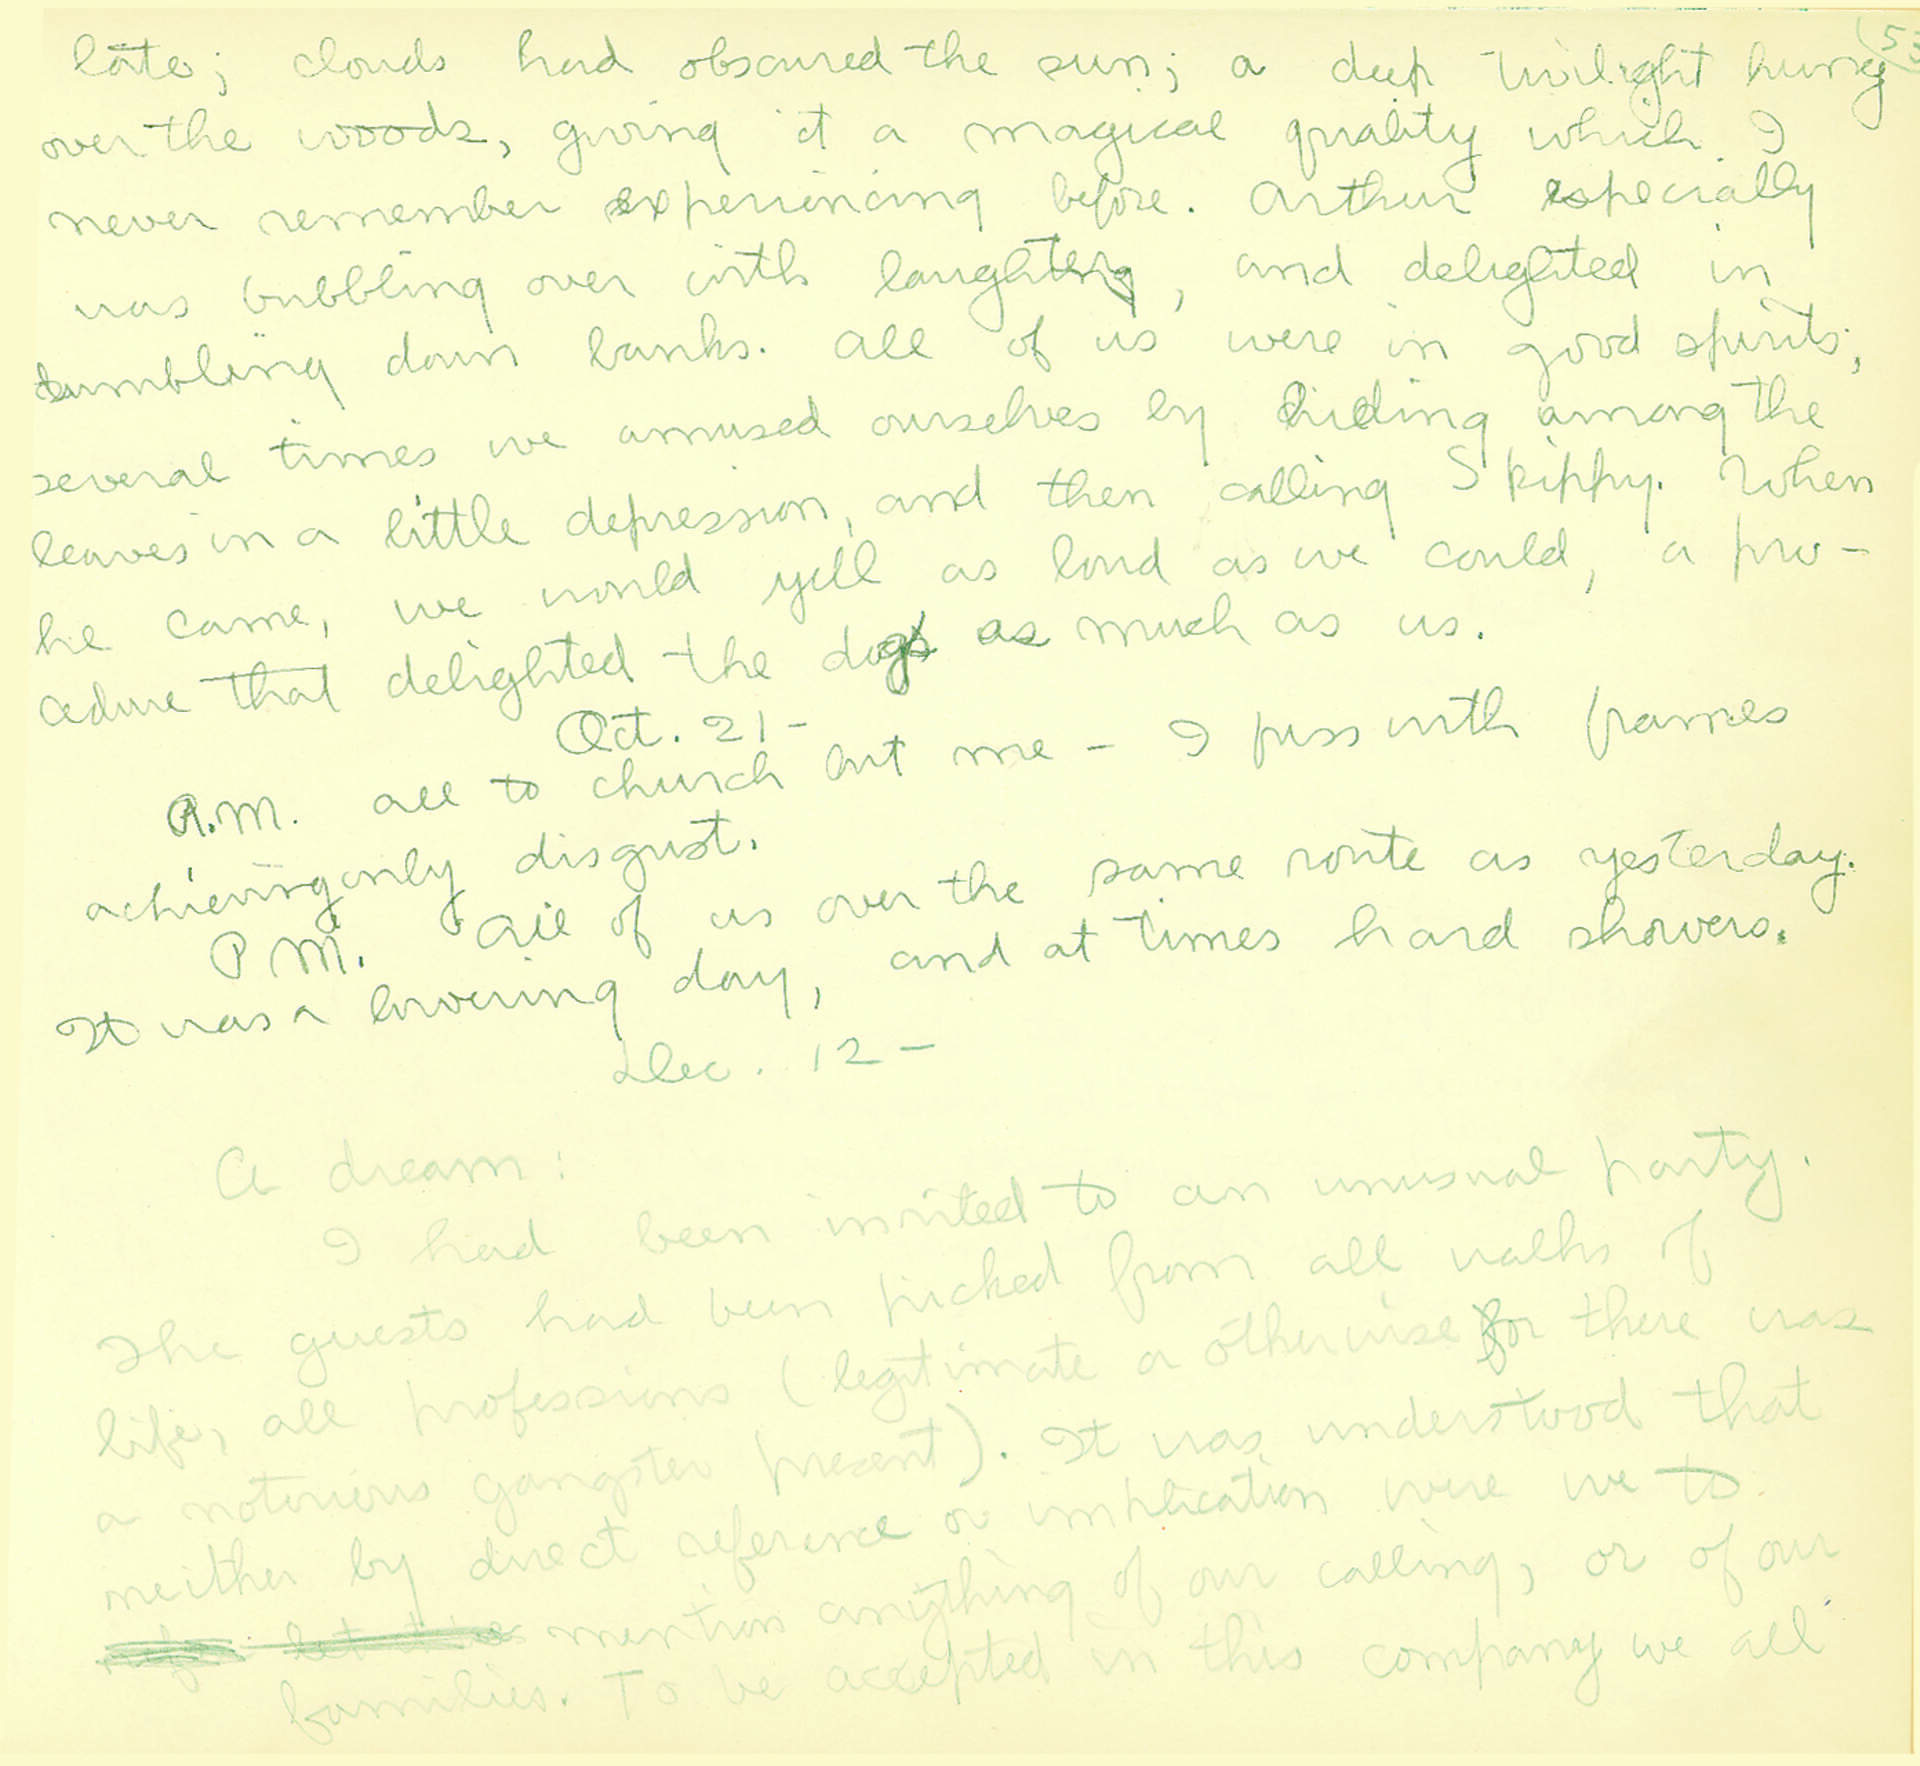 (53
late; clouds had obscured the sun; a deep twilight hung
over the woods, giving it a magical quality which I
never remember experiencing before. Arthur especially
was bubbling over with laughter, and delighted in
tumbling down banks. All of us were in good spirits;
several times we amused ourselves by hiding among the
leaves in a little depression, and then calling Skippy. When
he came, we would yell as loud as we could, a pro-
cedure that delighted the dog as much as us.
Oct. 21-
A.M. all to church but me - I fuss with frames
achieving only disgust.
P.M. All of us over the same route as yesterday.
It was a lowering day, and at times hard showers.
Dec. 12-
A dream:
I had been invited to an unusual party.
The guests had been picked from all walks of
life, all professions (legitimate or otherwise for there was
a notorious gangster present). It was understood that
neither by direct reference or implication were we to
mention anything of our calling, or of our
families. To be accepted in this company we all